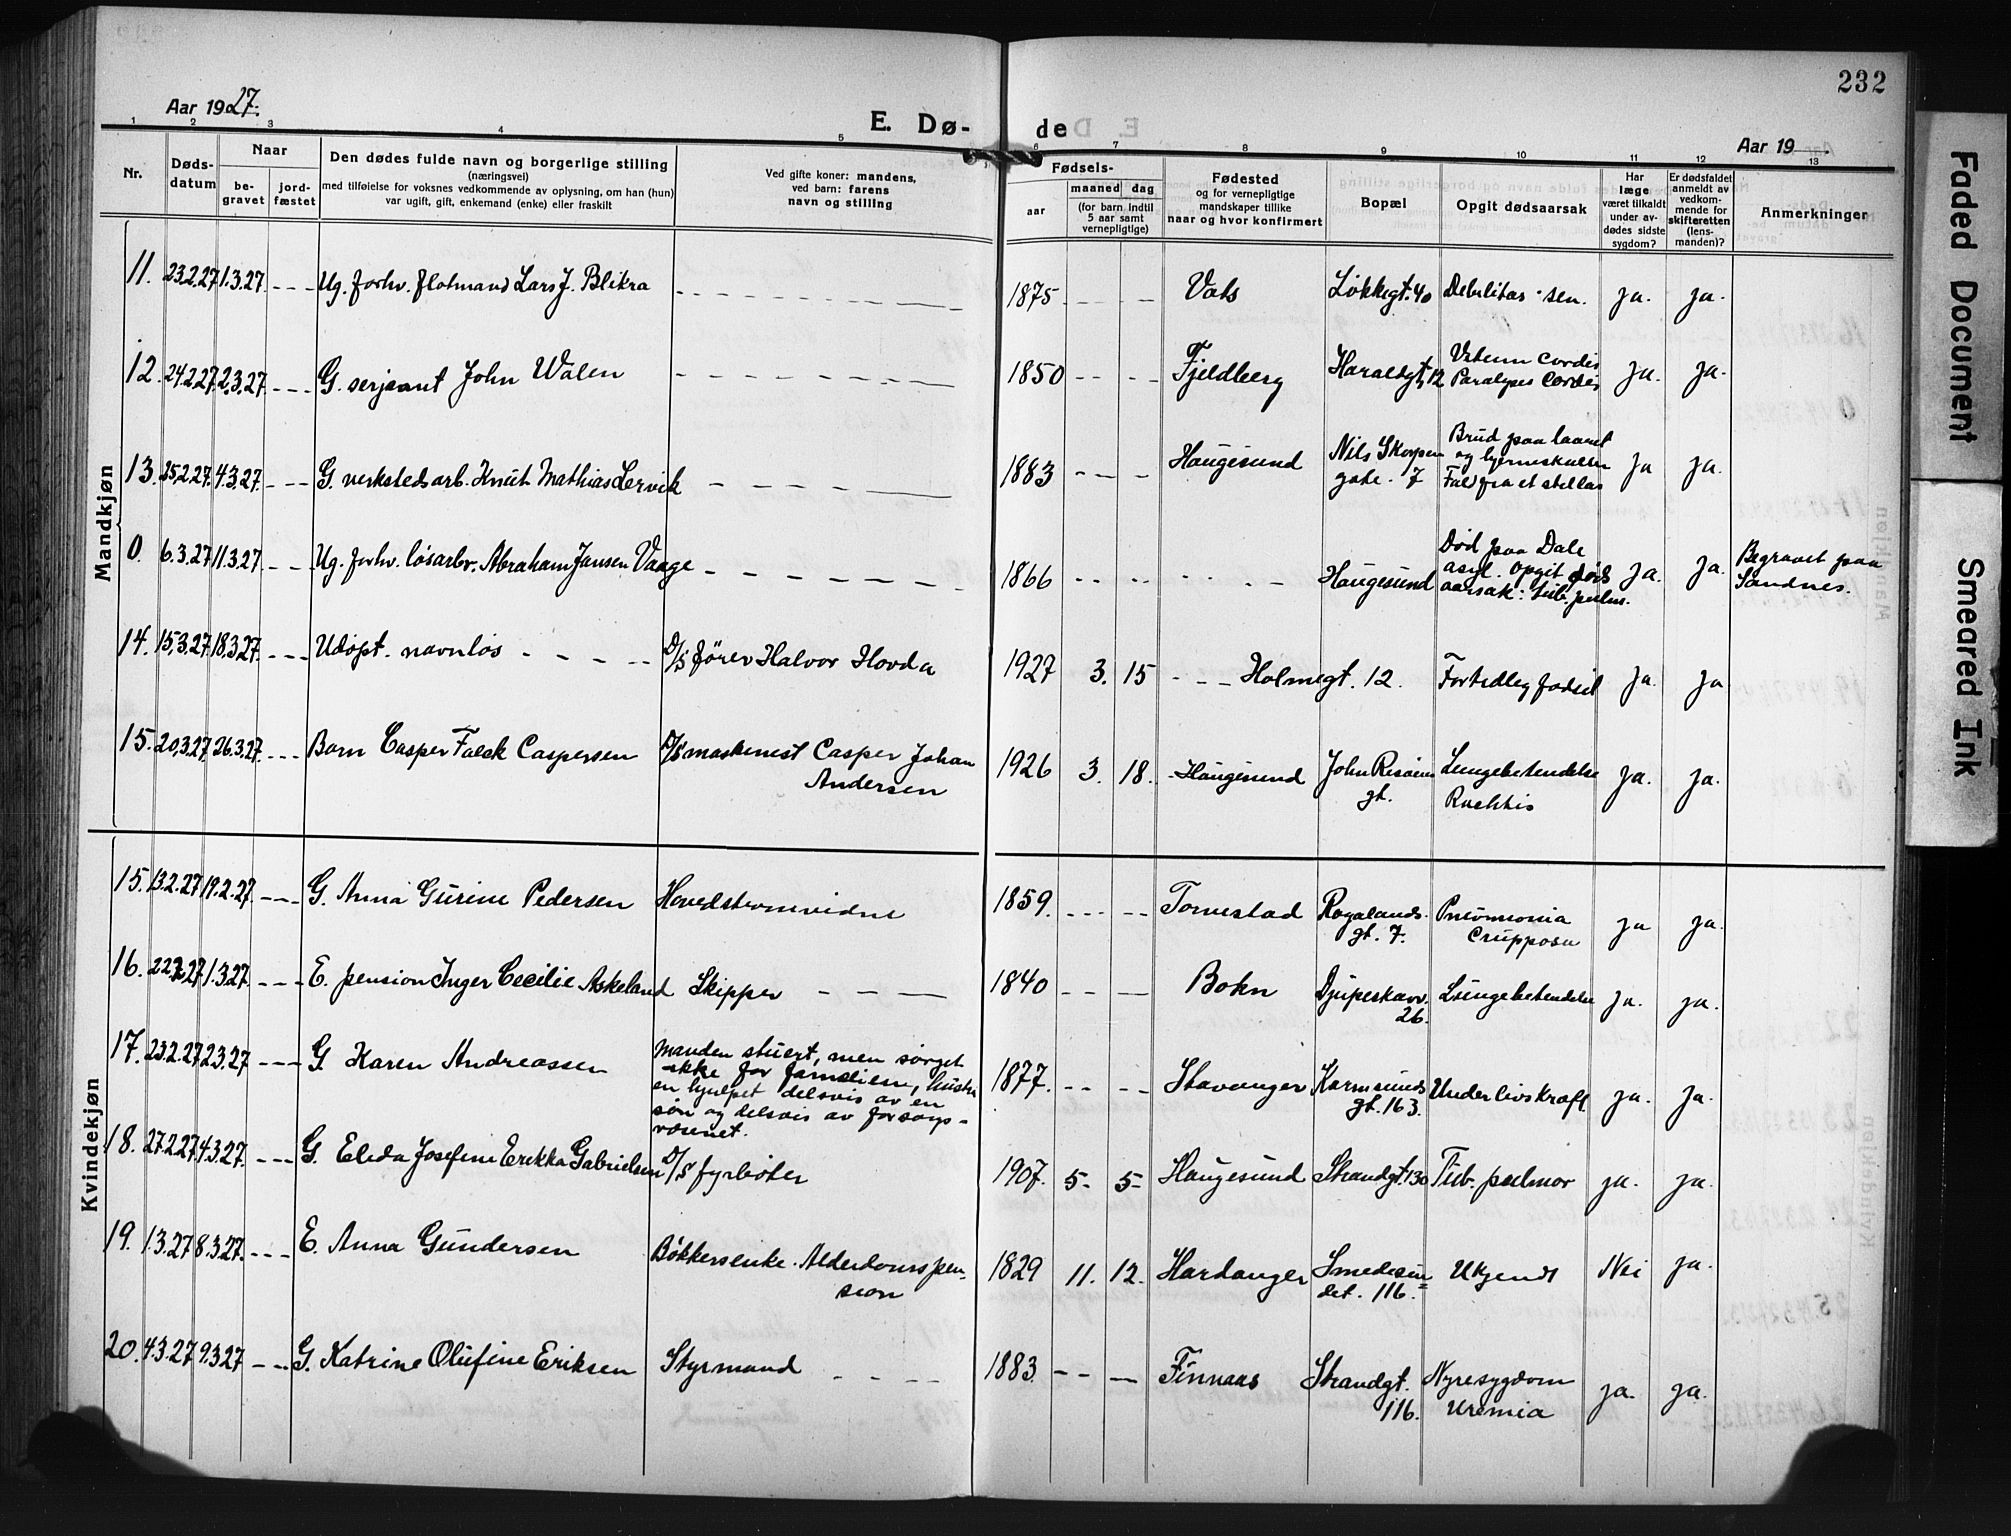 232
Aar 1927.
E. Dø- de
Aar 19
1 2 3 4 5 6 7 8 9 10 11 12 13
Nr.
Døds-
datum
Naar
be-
gravet
jord-
fæstet
Den dødes fulde navn og borgerlige stilling
(næringsvei)
med tilføielse for voksnes vedkommende av oplysning, om han (hun)
var ugift, gift, enkemand (enke) eller fraskilt
Ved gifte koner: mandens,
ved barn: farens
navn og stilling
Fødsels-
aar
maaned dag
(for barn indtil
5 aar samt
vernepligtige)
Fødested
og for vernepligtige
mandskaper tillike
naar og hvor konfirmert
Bopæl
Opgit dødsaarsak
Har
læge
været tilkaldt
under av-
dødes sidste
sygdom?
Er dødsfaldet
anmeldt av
vedkom-
mende for
skifteretten
(lens-
manden)?
Anmerkninger
Mandkjøn
11. 23.2.27 1.3.27. Ug. forhv. flotmand Lars J. Blikra 1875 Vats Løkkegt. 40 Debilitas sen. ja. ja.
12. 24.2.27. 2.3.27. G. serjeant John Walen 1850 Fjeldberg Haraldgt. 12 cordis
Paralyses Cordis ja. ja.
13. 25.2.27. 4.3.27. G. verkstedsarb. Knut Mathias Lervik 1883 Haugesund Nils Skorpen
gate. 7 Brud paa laaret
og hjerneskallen
Fald fra et stellas ja ja.
0 6.3.27 11.3.27 Ug. forhv. løsarbr. Abraham Jansen Vaage 1866 Haugesund Død paa Dale
asyl. Opgit døds
aarsak: tub. pulm. ja. ja. Begravet paa
Sandnes.
14. 15.3.27. 18.3.27. Udøpt. navnløs D/S fører Halvor Hovda 1927 3. 15 Holmegt. 12. Fortidleg fødsel ja. ja
15. 20.3.27. 26.3.27. Barn Casper Falck Caspersen D/S maskinist Casper Johan
Andersen 1926 3. 18. Haugesund John Risøens
gt. Lungebetendelse
Rachitis ja. ja.
Kvindekjøn
15. 13.2.27 19.2.27. G. Anna Gurine Pedersen 1859. Torvestad Rogalands-
gt. 7. Pneumonia
Crupposa ja ja.
16. 22.2.27 1.3.27. E. pension Inger Cecilie Askeland Skipper 1840 Bokn Djupesklavr.
26. Lungebetendelse ja. ja.
17. 23.2.27 2.3.27 G Karen Andreassen Manden stuert, men sørget
ikke for familien, hustru
en hjulpet delsvis av en
søn og delsvis av forsorgs-
væsenet. 1877. Stavanger Karmsunds
gt. 163. Underlivskræft ja. ja.
18. 27.2.27 4.3.27. G. Elida Josefine Erikka Gabrielsen D/S fyrbøter 1907. 5. 5. Haugesund Strandgt. 130 Tub. pulmor ja. ja.
19. 1.3.27 8.3.27. E. Anna Gundersen Bøkkersenke. Alderdomspen-
sion 1829 11. 12. Hardanger Smedesun=
det. 116. Ukjendt Nei ja.
20. 4.3.27 9.3.27 G. Katrine Olufine Eriksen Styrmand 1883. Finnaas Strandgt.
116. Nyresygdom
Uremia ja. ja.
Faded Document
Smeared Ink